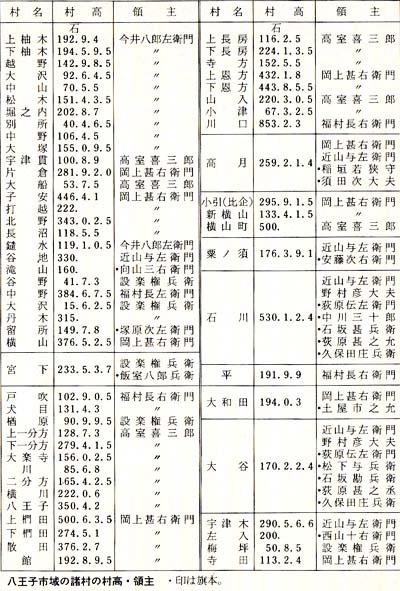 村名 村高 領主
石
上柚木 192.9.4 今井八郎左衛門
下柚木 194.5.9.5 〃
越野 142.9.8.5 〃
大沢 92.6.4.5 〃
中山 70.5.5 〃
松木 151.4.3.5 〃
堀之内 202.8.7 〃
別所 40.4.6.5 〃
中野 106.4.5 〃
大塚 155.0.9.5 〃
宇津貫 100.8.9 高室喜三郎
片倉 281.9.2.0 岡上甚右衛門
大船 53.7.5 高室喜三郎
子安 446.4.1 岡上甚右衛門
打越 222. 〃
北野 343.0.2.5 〃
長沼 118.5.5 〃
鑓水 119.1.0.5 今井八郎左衛門
谷地 330. 近山与左衛門
滝山 160. ・向山三右衛門
谷野 41.7.3 設楽権兵衛
中野 384.6.7.5 福村長左衛門
大沢 15.6.2.5 設楽権兵衛
丹木 315. 〃
留所 149.7.8 ・塚原次左衛門
横山 376.5.2.5 岡上甚右衛門
宮下 233.5.3.7 設楽権兵衛
・飯室八郎兵衛
戸吹 102.9.0.5 福村長右衛門
犬目 131.4.3 〃
楢原 90.9.9.5 設楽権兵衛
上一分方 128.7.3 高室喜三郎
下一分方 279.4.1.5 〃
大楽寺 156.0.2.5 〃
川 85.6.8 〃
二分方 165.4.2.5 〃
横川 222.0.6 〃
八王子 350.4.2 〃
上椚田 500.6.3.5 岡上甚右衛門
下椚田 274.5.1 〃
散田 376.2.7 〃
館 192.8.9.5 〃
村名 村高 領主
石
上長房 116.2.5 高室喜三郎
下長房 224.1.3.5 〃
寺方 152.5.5 〃
上恩方 432.1.8 岡上甚右衛門
下恩方 443.8.5.5 〃
山入 220.3.0.5 高室喜三郎
小津 67.3.2.5 〃
川口 853.2.3 福村長右衛門
高月 259.2.1.4 岡上甚右衛門
近山与左衛門
・稲垣若狭守
・須田次大夫
小引(比企) 295.9.1.5 岡上甚右衛門
新横山 133.4.1.5 〃
横山町 500. 高室喜三郎
粟ノ須 176.3.9.1 近山与左衛門
・安藤次右衛門
石川 530.1.2.4 近山与左衛門
野村彦大夫
・荻原伝左衛門
・中川三十郎
・石坂甚兵衛
・荻原甚之允
・久保田庄兵衛
平 191.9.9 福村長右衛門
大和田 194.0.3 岡上甚右衛門
・土屋市之允
大谷 170.2.2.4 近山与左衛門
野村彦大夫
・荻原伝左衛門
・松下与兵衛
・石坂勘兵衛
・荻原甚之丞
・久保田庄兵衛
宇津木 290.5.6.6 近山与左衛門
左入 200. ・西山十右衛門
梅坪 50.8.5 設楽権兵衛
寺田 113.2.4 岡上甚右衛門
八王子市域の諸村の村高・領主 ・印は旗本。